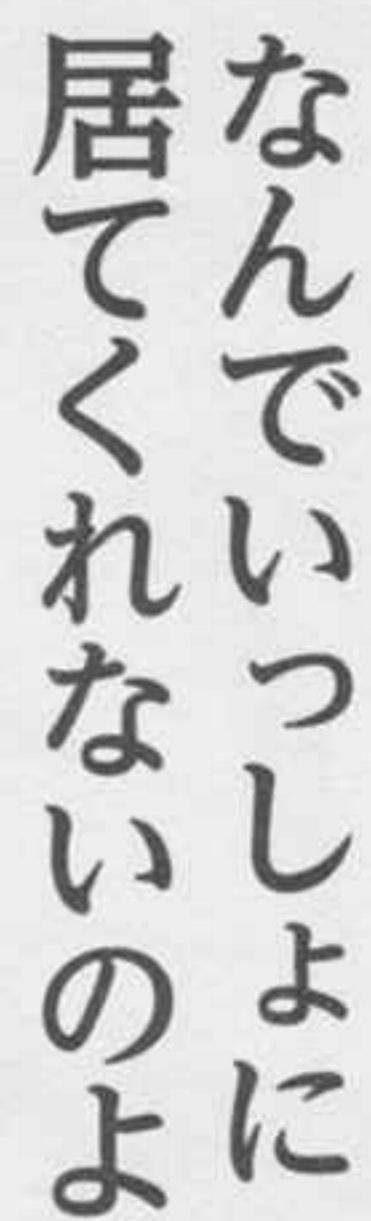 なんでいっしょに
居てくれないのよ